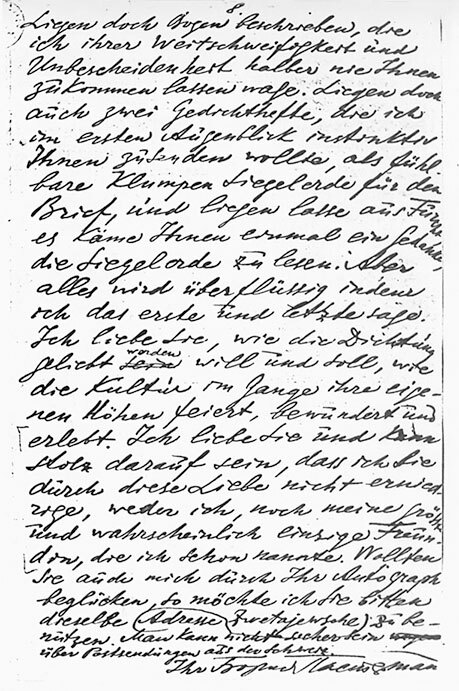 Liegen doch Bogen 8 beschrieben, die
ich ihrer Weitschweifigkeit und
Unbescheidenheit halber nie Ihnen
zukommen lassen wage. Liegen doch
auch zwei Gedichthefte, die ich
im ersten Augenblick instinktiv
Ihnen zusenden wollte, als fühl-
bare Klumpen Siegelerde für den
Brief, und liegen lasse aus Furcht
es käme Ihnen einmal ein Gedanke,
die Siegelerde zu lesen. Aber
alles wird überflüssig indem
ich das erste und letzte sage.
Ich liebe Sie, wie die Dichtung
geliebt worden will und soll, wie
die Kultur im Gange ihre eige-
nen Höhen feiert, bewundert und
erlebt. Ich liebe Sie und kann
stolz darauf sein, dass ich Sie
durch diese Liebe nicht ernied-
rige, weder ich, noch meine größte
und wahrscheinlich einzige Freun-
din, die ich schon nannte. Wollten
Sie auch mich durch Ihr Autograph
beglücken, so möchte ich Sie bitten
dieselbe Adresse (Zwetajewsche) zu be-
nutzen. Man kann nicht sicher sein
über Postsendungen aus der Schweiz.
Ihr Boris